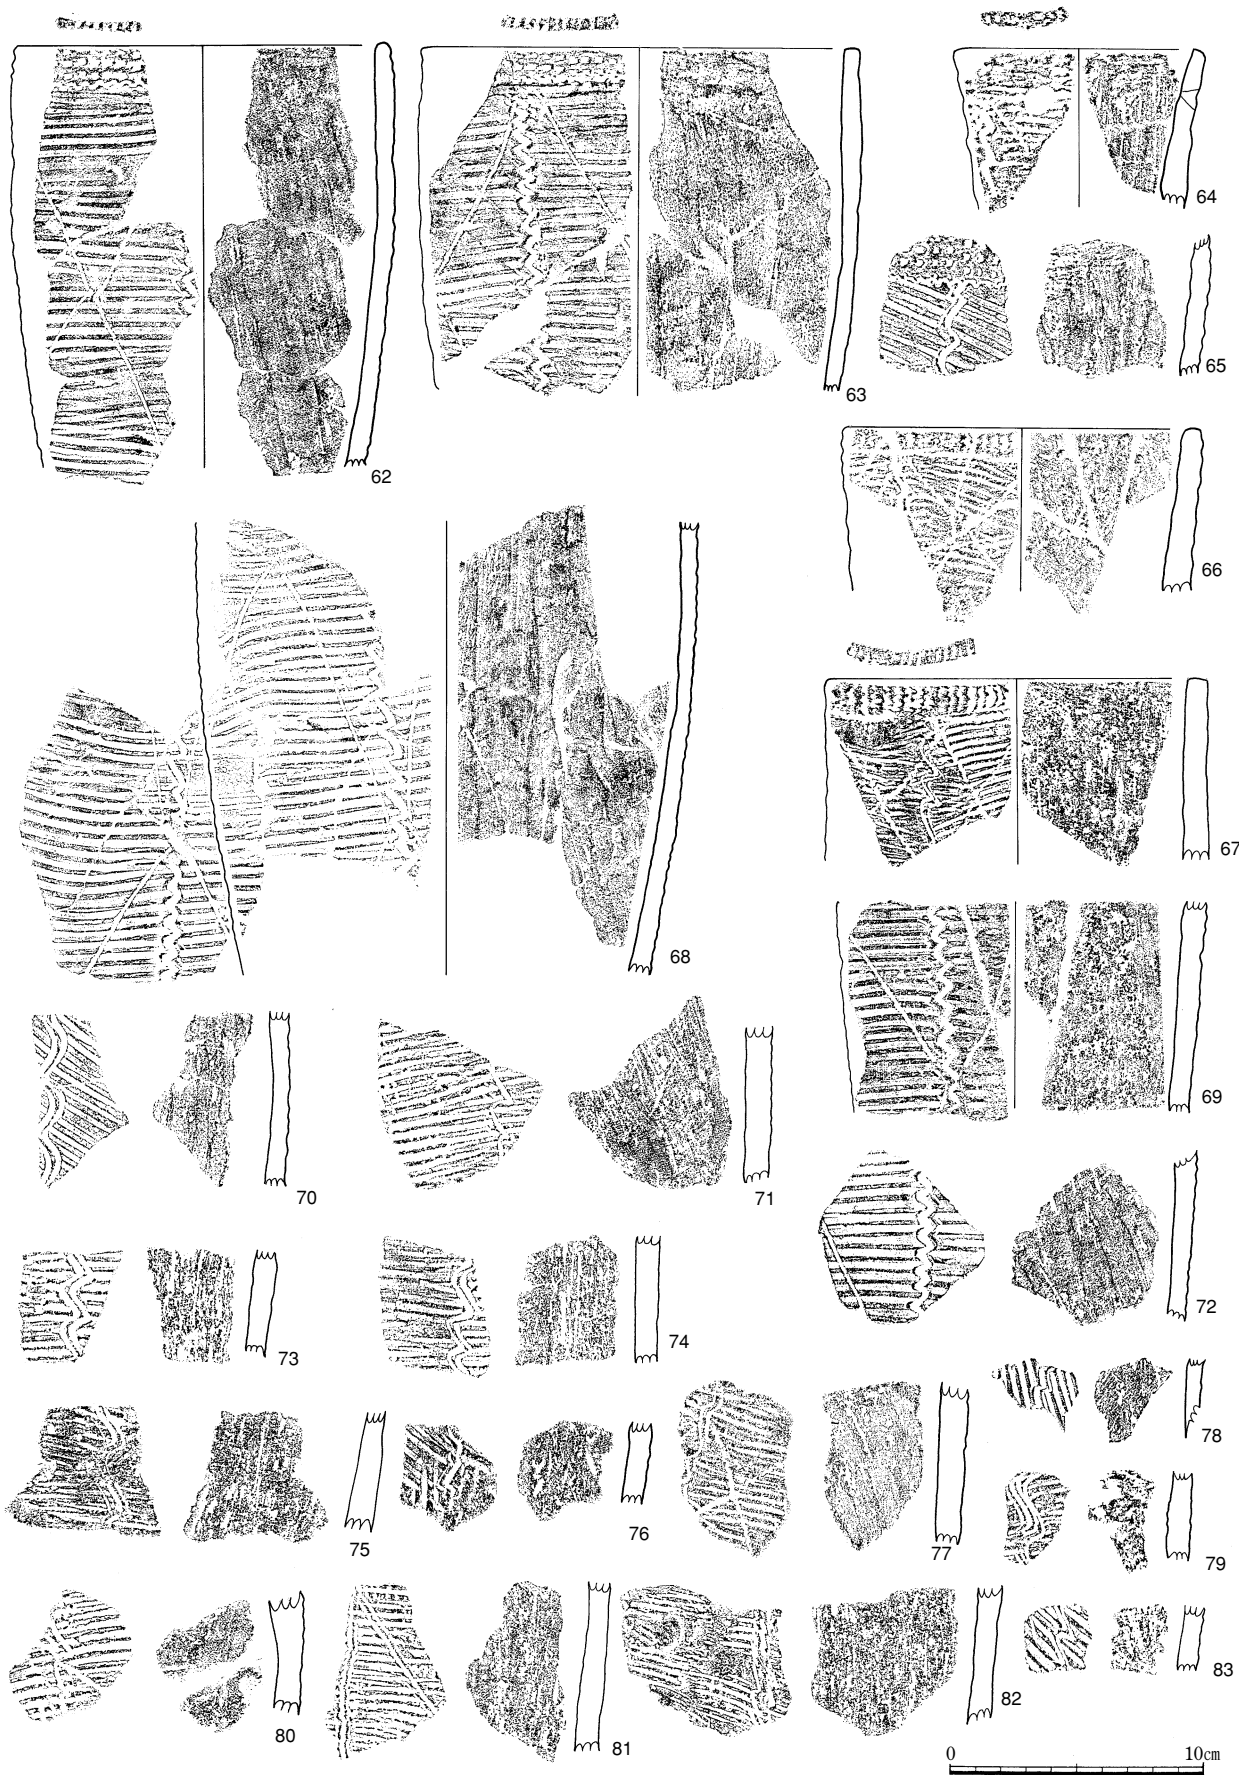 64
65
63
62
66
67
68
69
70
71
72
73
74
78
75
76
77
79
80
81
82
83
0 10cm